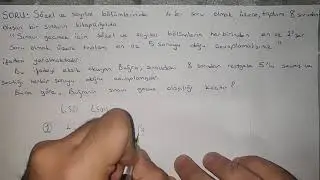 SORU: Sözel ve sayısal bölümlerinde 4'er soru olmak üzere, toplam 8 sorudan
oluşan bir sınavın kitapçığında
"Sınavı geçmek için sözel ve sayısal bölümlerinin herbirinden en az 1'er
soru olmak üzere toplam en az 5 soruyu doğru cevaplamalısınız."
ifadesi yer almaktadır.
Bu ifadeyi eksik okuyan Buğra, sınavdaki 8 sorudan rastgele 5'ini seçmiş ve
seçtiği herbir soruyu doğru cevaplamıştır.
Buna göre, Buğra'nın sınavı geçme olasılığı kaçtır?